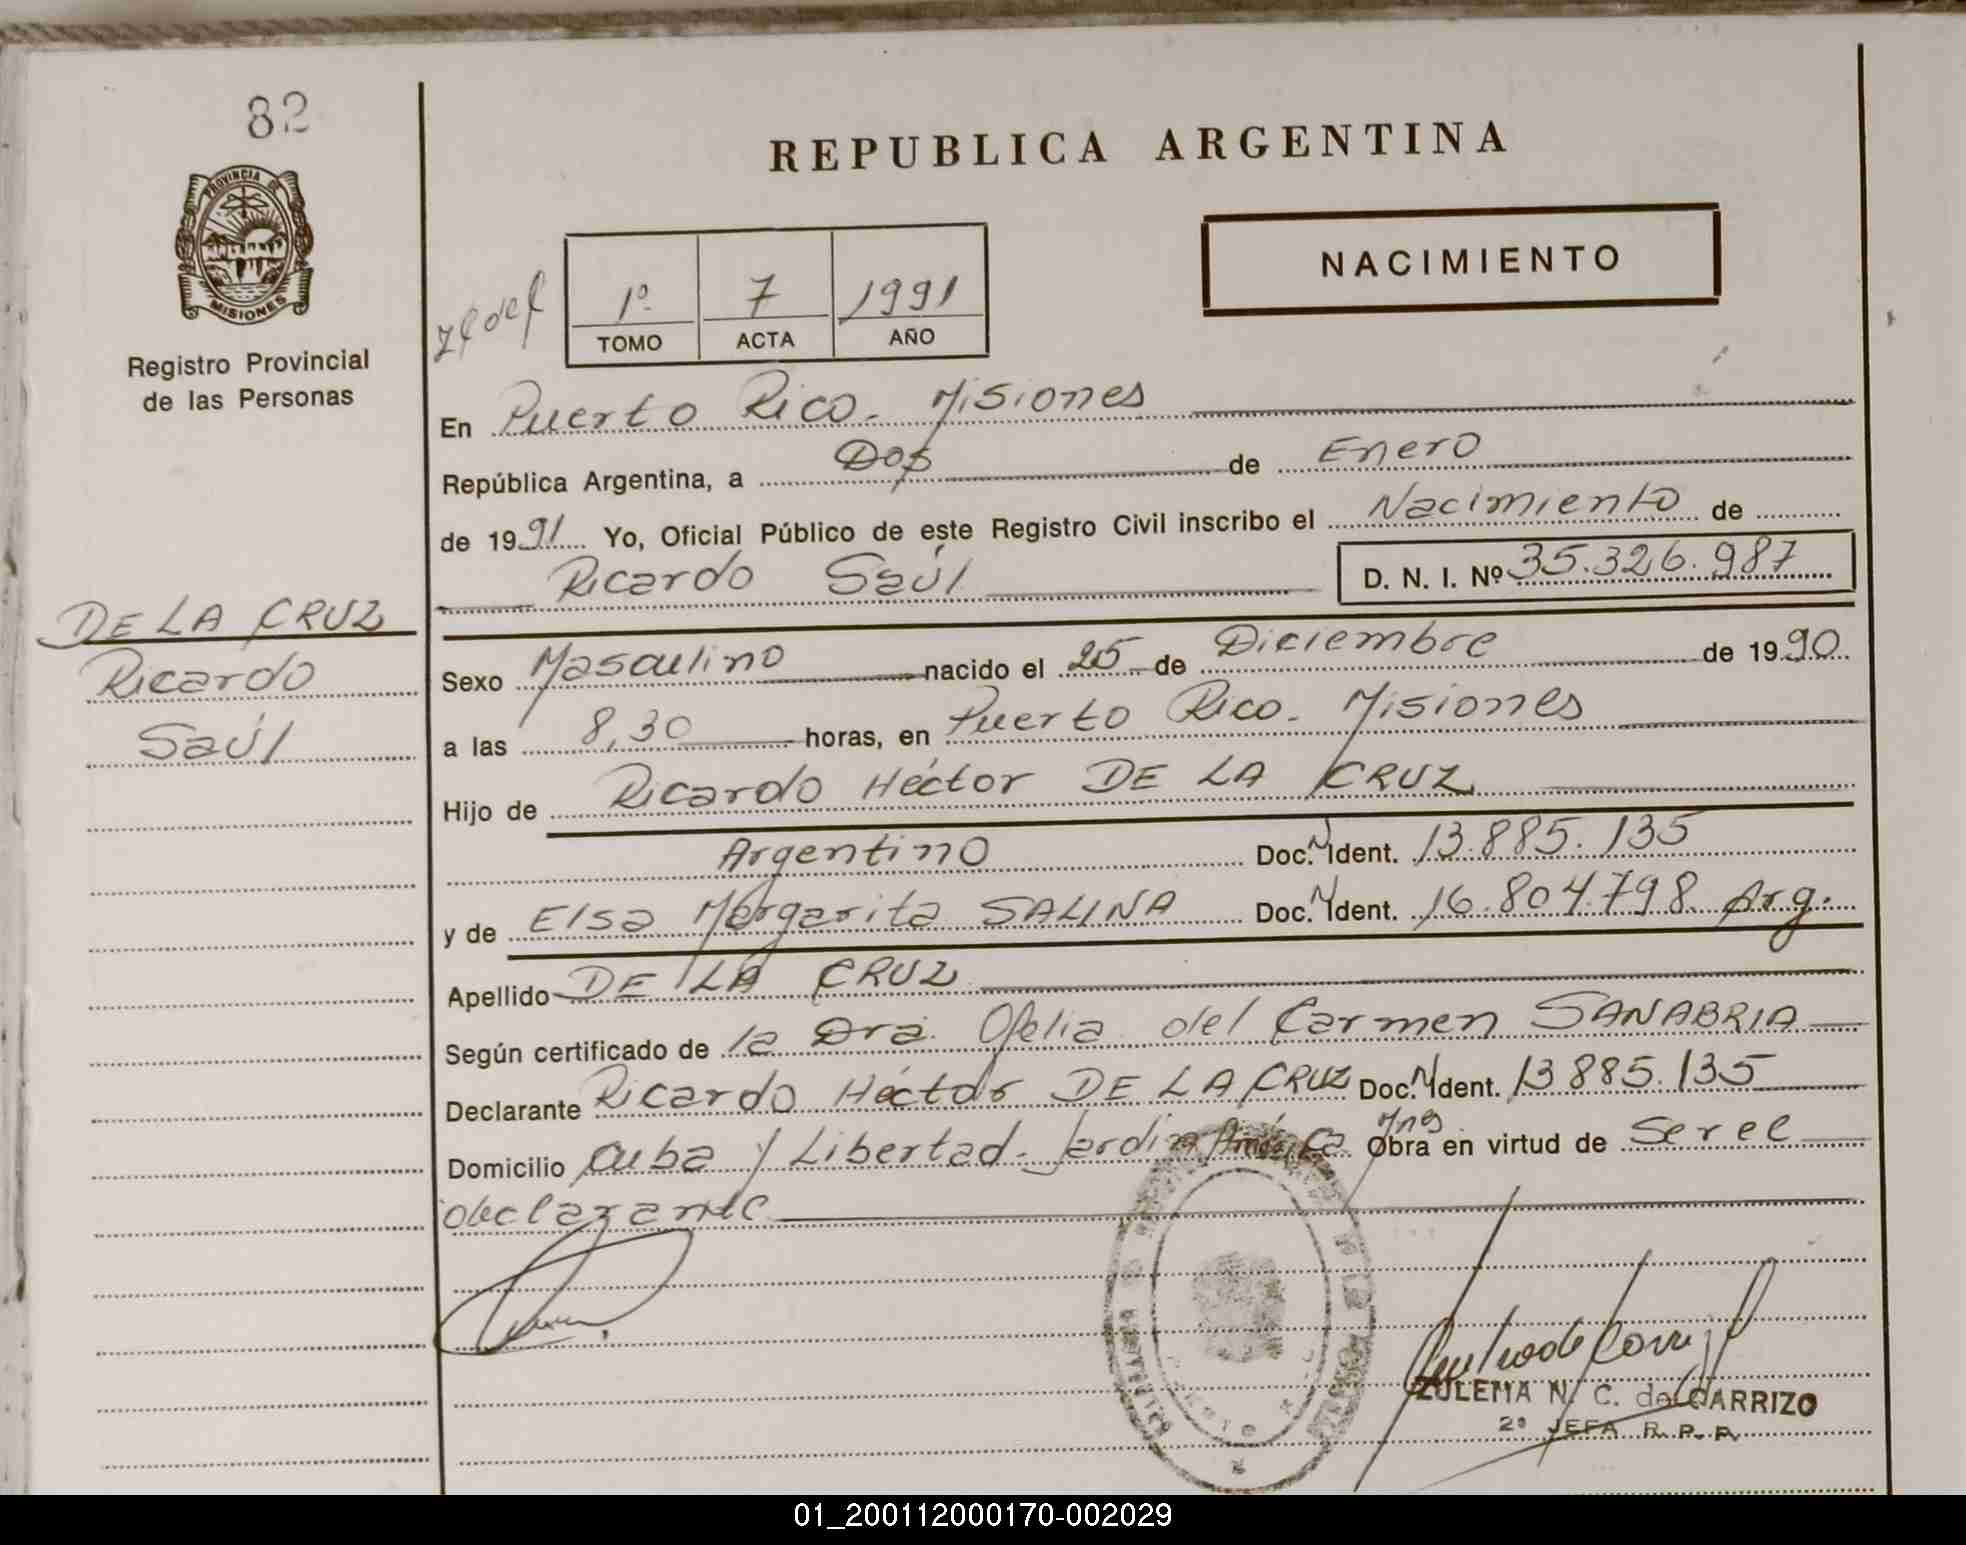 82
PROVINCIA DE
MISIONES
Registro Provincial
de las Personas
REPUBLICA ARGENTINA
NACIMIENTO
1º 7 1991
TOMO ACTA AÑO
En Puerto Rico - Misiones
República Argentina, a Dos de Enero
de 1991 Yo, Oficial Público de este Registro Civil inscribo el Nacimiento de
Ricardo Saúl D. N. I. Nº 35.326.987
DE LA CRUZ
Ricardo
Saúl
Sexo Masculino nacido el 25 de Diciembre de 1990
a las 8,30 horas, en Puerto Rico - Misiones
Hijo de Ricardo Héctor DE LA CRUZ
Argentino Doc. N Ident. 13.885.135
y de Elsa Margarita SALINA Doc. N Ident. 16.804.798 Arg.
Apellido DE LA CRUZ
Según certificado de la Dra. Ofelia del Carmen SANABRIA
Declarante Ricardo Héctor DE LA CRUZ Doc. N Ident. 13.885.135
Domicilio Cuba y Libertad - Jardin América Mnes Obra en virtud de ser el
declarante
ZULEMA N. C. de CARRIZO
2º JEFA R. P. P.
01_200112000170-002029